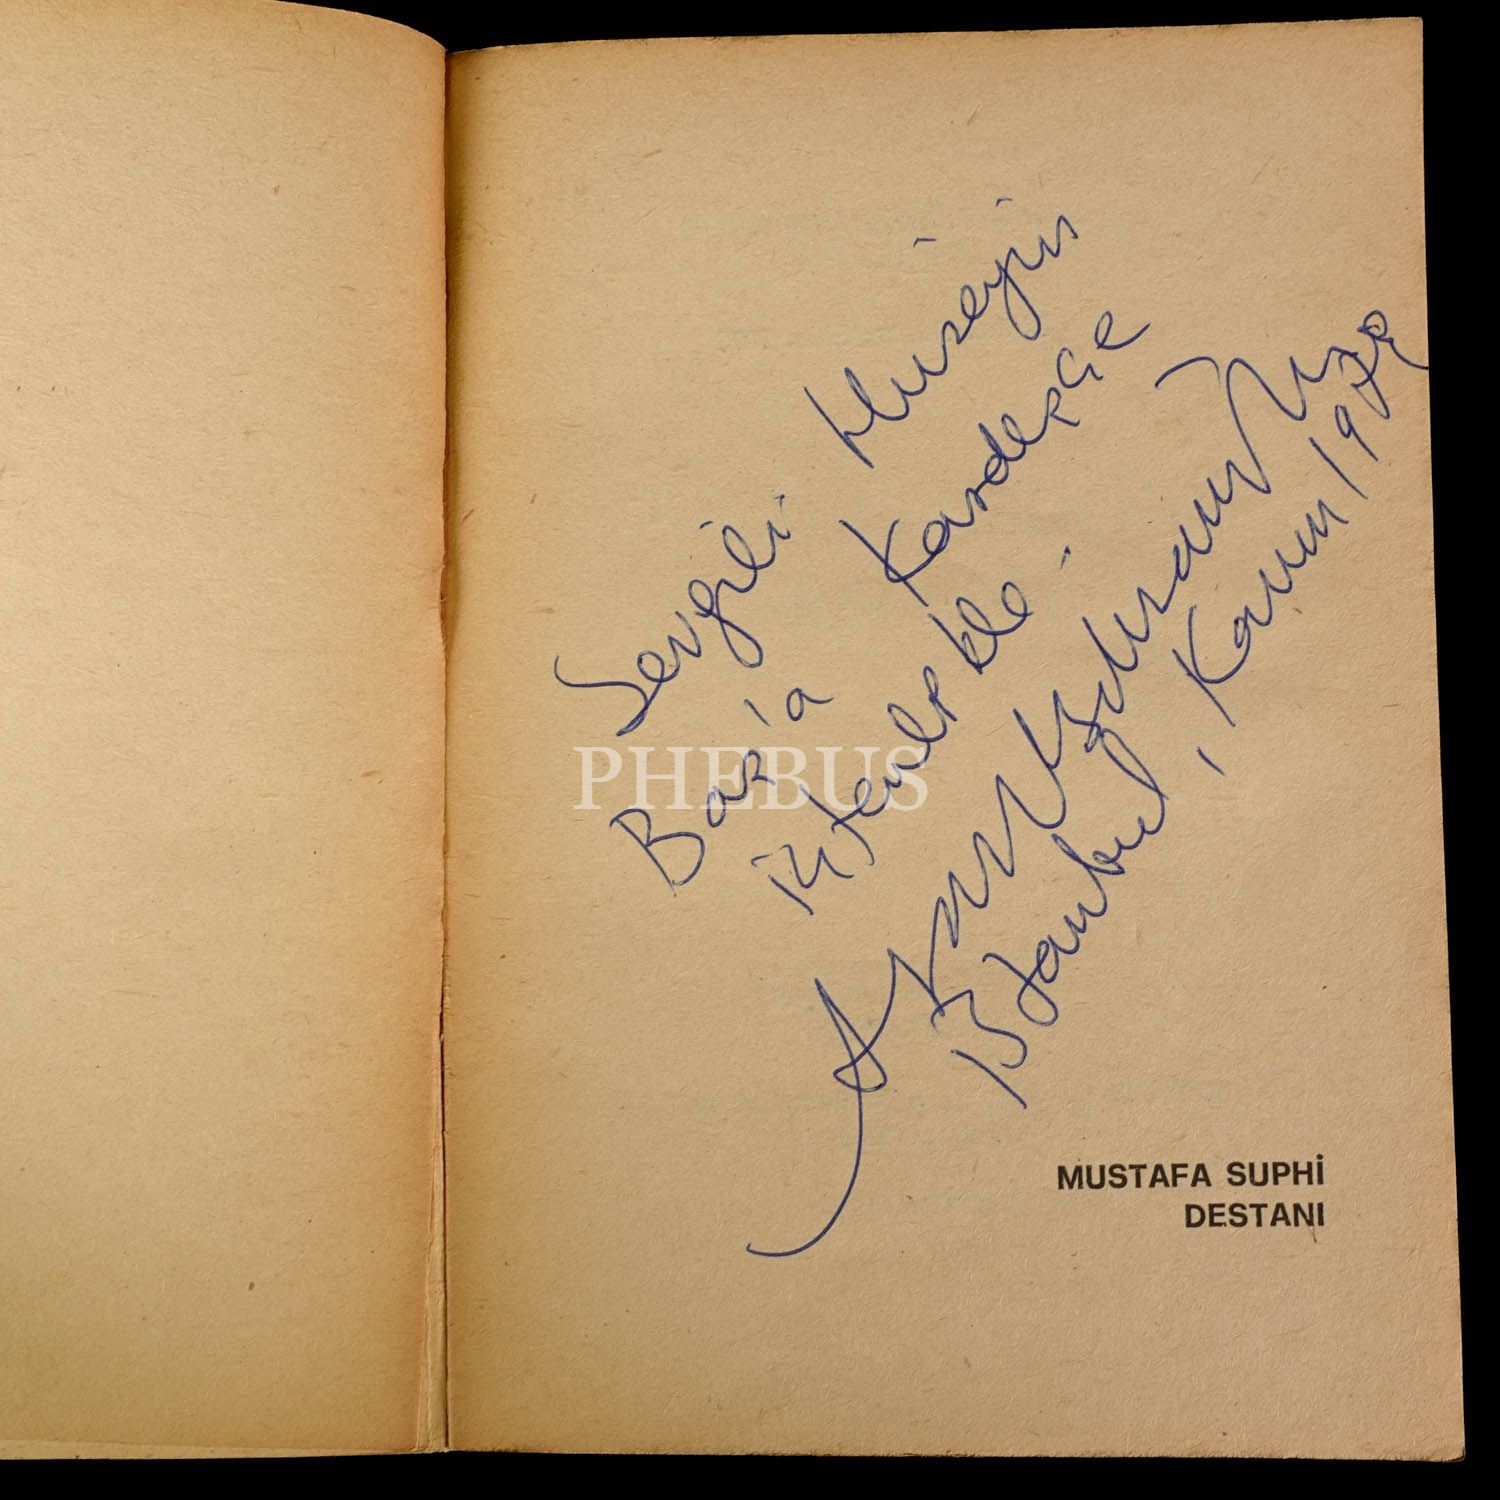 Sevgili Hüseyin
Baş'a Kardeşçe
içtenlikle.
İstanbul, Kasım 1979
PHEBUS
MUSTAFA SUPHİ
DESTANI